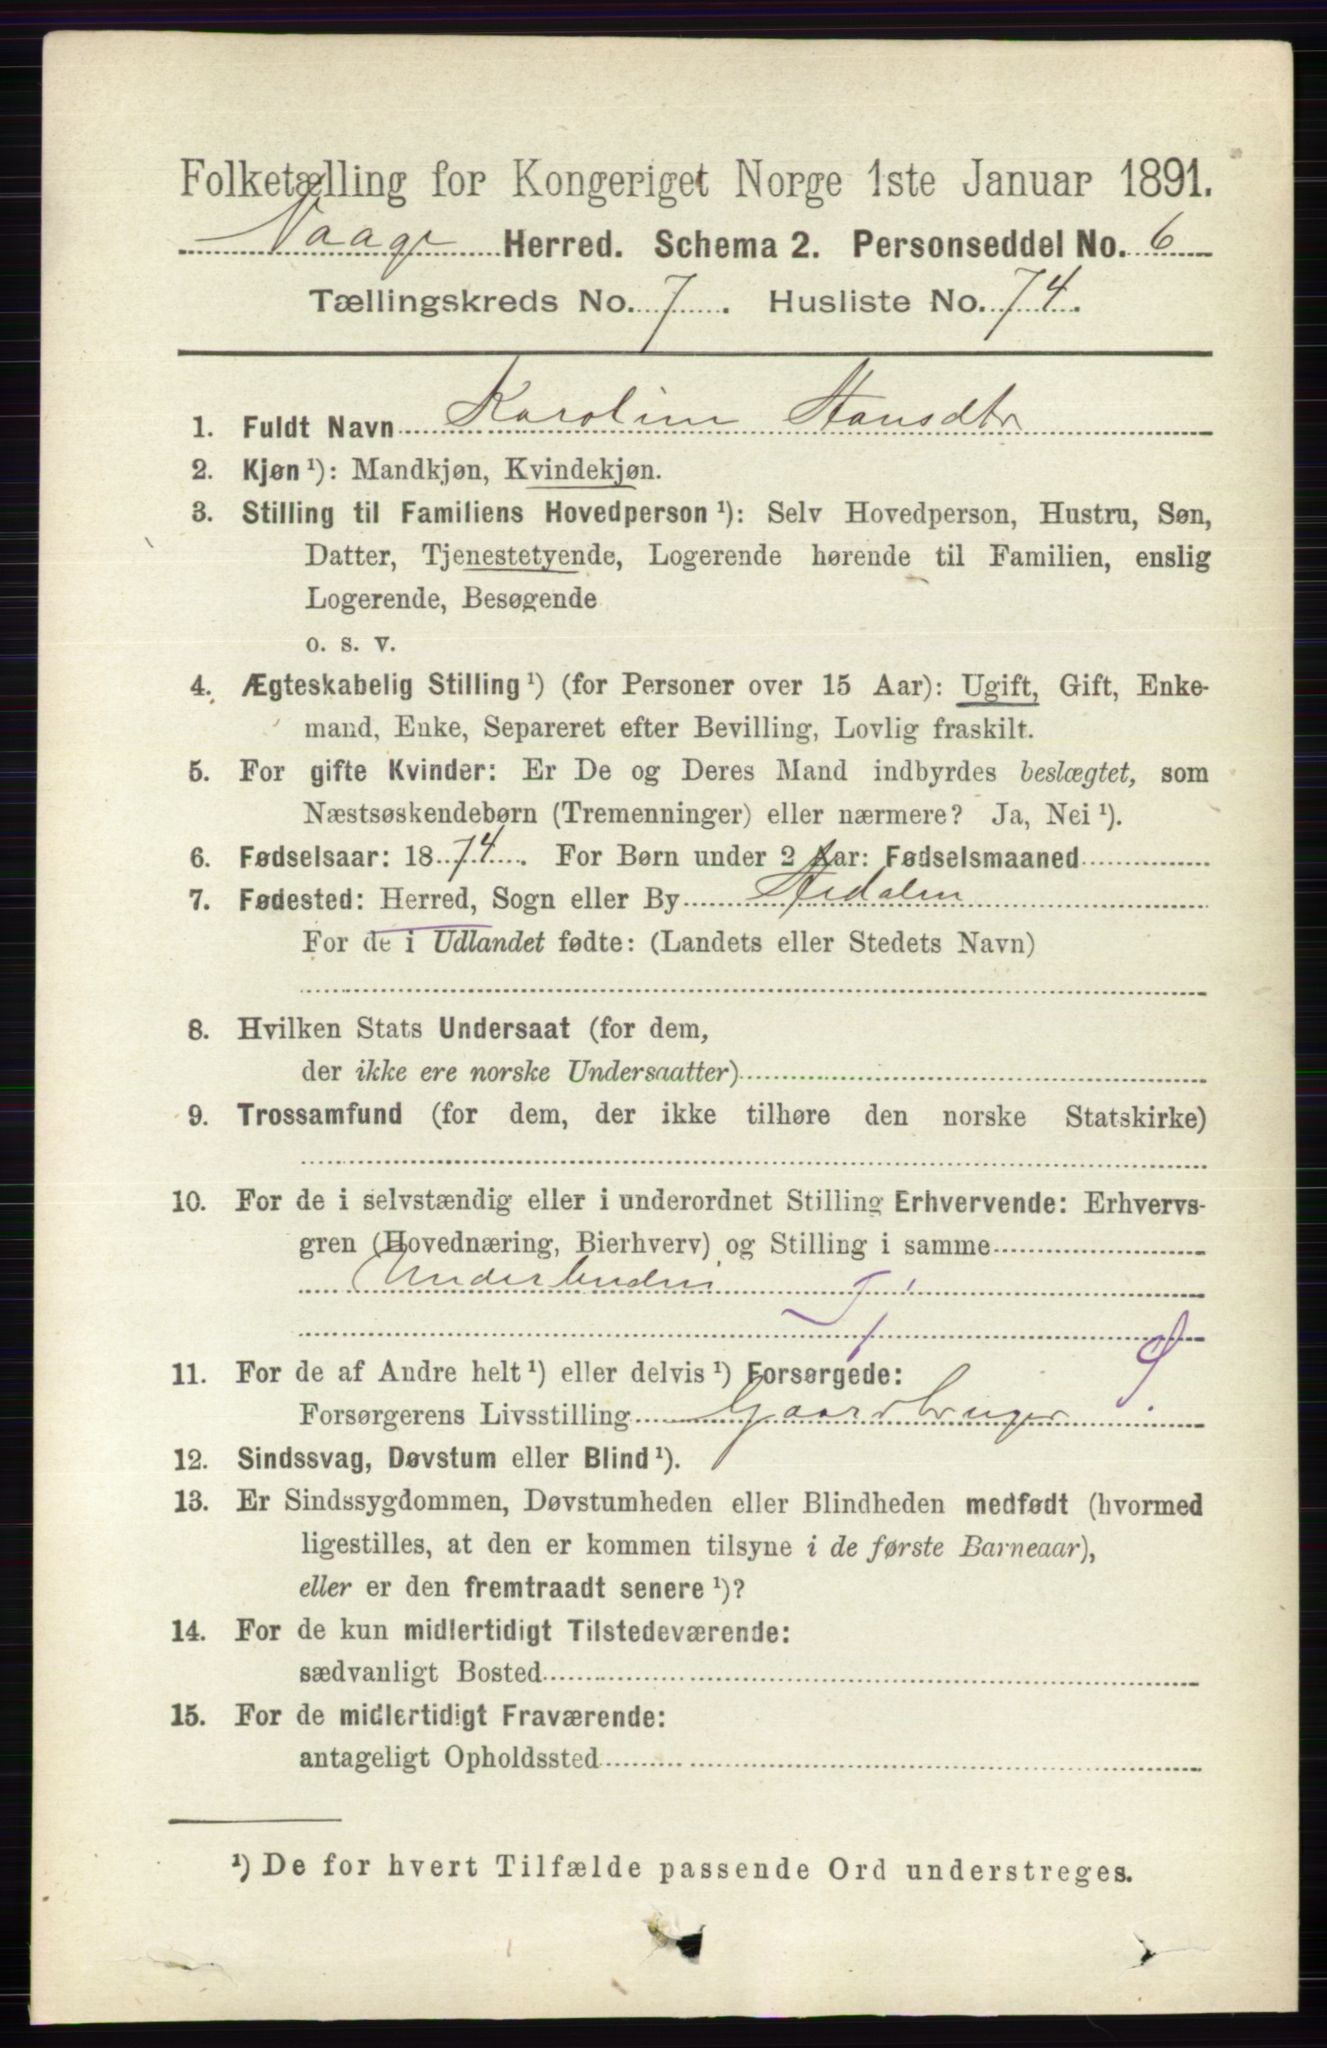 Folketælling for Kongeriget Norge 1ste Januar 1891.
Vaage Herred. Schema 2. Personseddel No. 6
Tællingskreds No. 7. Husliste No. 74.
1. Fuldt Navn Karoline Hansdtr
2. Kjøn ¹): Mandkjøn, Kvindekjøn.
3. Stilling til Familiens Hovedperson ¹): Selv Hovedperson, Hustru, Søn,
Datter, Tjenestetyende, Logerende hørende til Familien, enslig
Logerende, Besøgende
o. s. v.
4. Ægteskabelig Stilling ¹) (for Personer over 15 Aar): Ugift, Gift, Enke-
mand, Enke, Separeret efter Bevilling, Lovlig fraskilt.
5. For gifte Kvinder: Er De og Deres Mand indbyrdes beslægtet, som
Næstsøskendebørn (Tremenninger) eller nærmere? Ja, Nei ¹).
6. Fødselsaar: 18 74. For Børn under 2 Aar: Fødselsmaaned
7. Fødested: Herred, Sogn eller By Hedalen
For de i Udlandet fødte: (Landets eller Stedets Navn)
8. Hvilken Stats Undersaat (for dem,
der ikke ere norske Undersaatter)
9. Trossamfund (for dem, der ikke tilhøre den norske Statskirke)
10. For de i selvstændig eller i underordnet Stilling Erhvervende: Erhvervs-
gren (Hovednæring, Bierhverv) og Stilling i samme
Underbudei
11. For de af Andre helt ¹) eller delvis ¹) Forsørgede:
Forsørgerens Livsstilling Gaardbruger
12. Sindssvag, Døvstum eller Blind ¹).
13. Er Sindssygdommen, Døvstumheden eller Blindheden medfødt (hvormed
ligestilles, at den er kommen tilsyne i de første Barneaar),
eller er den fremtraadt senere ¹)?
14. For de kun midlertidigt Tilstedeværende:
sædvanligt Bosted
15. For de midlertidigt Fraværende:
antageligt Opholdssted
¹) De for hvert Tilfælde passende Ord understreges.